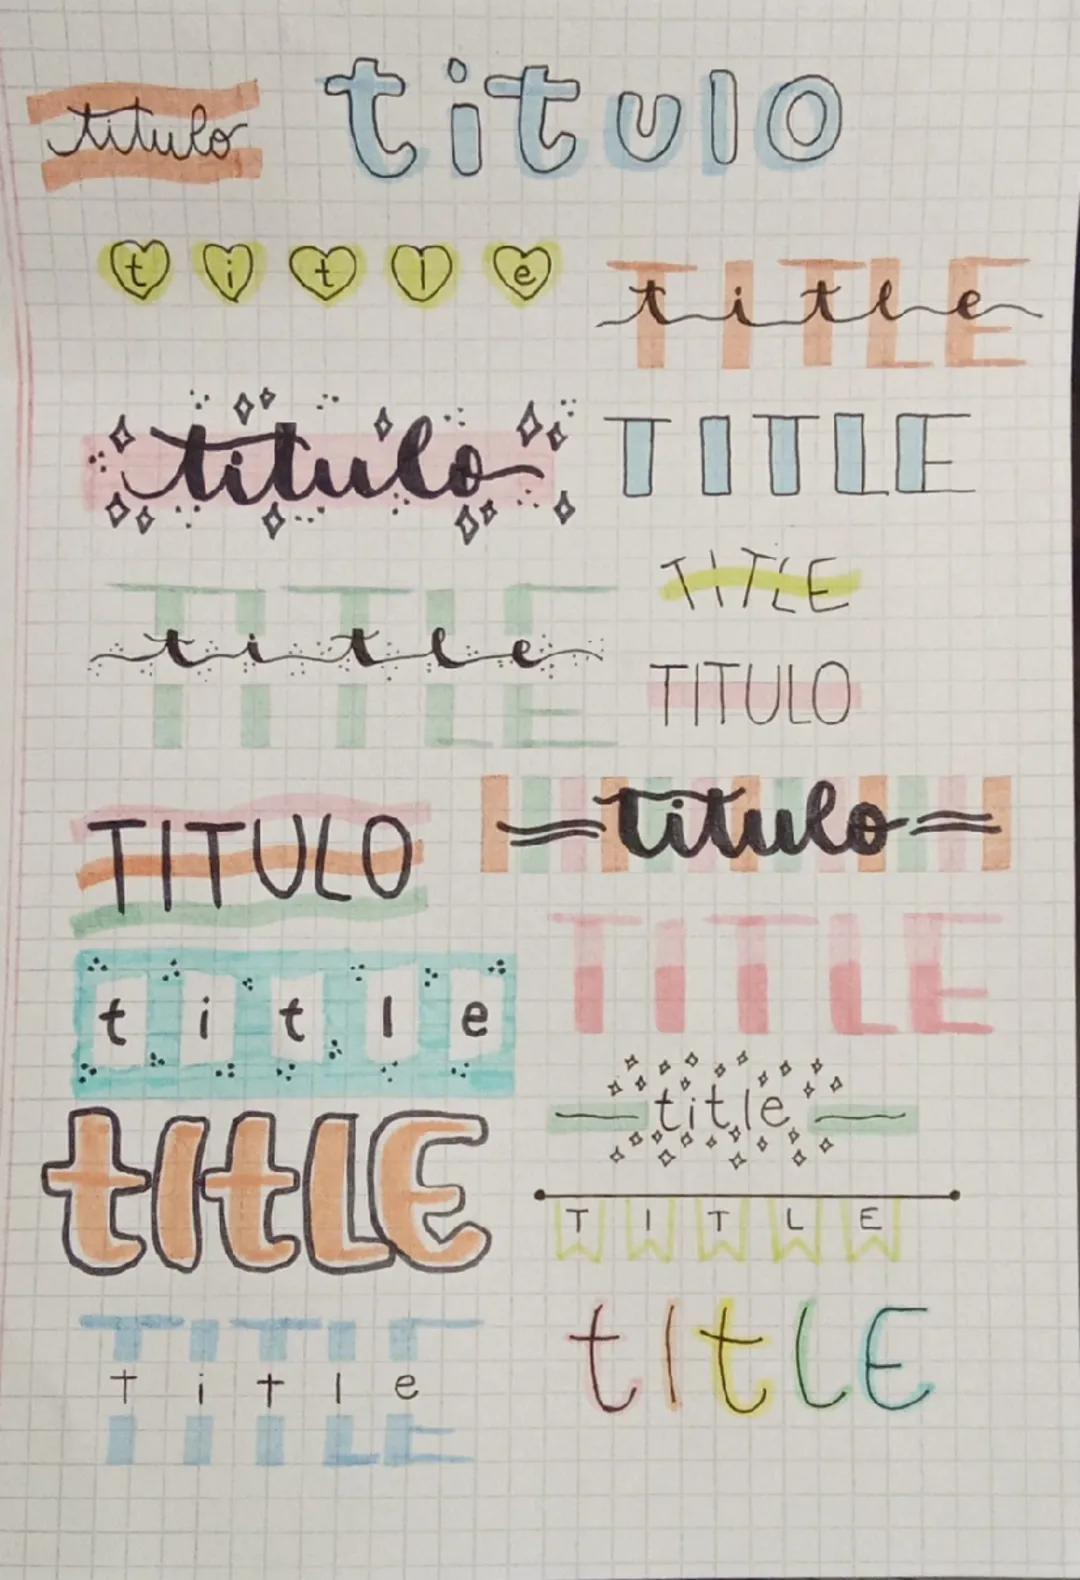 titulo
titulo
title
TITLE
title
titulo
TITLE
TITLE
TITLE
title
TITULO
titulo
TITULO
TITLE
title
title
tItLE
TITLE
tItLE
TITLE
title